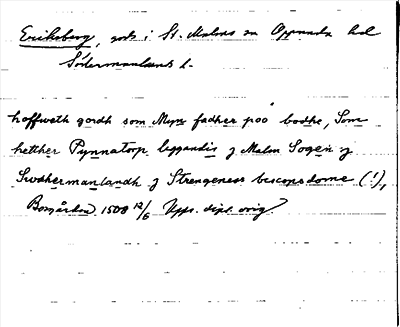 Eriksberg, gods i St. Malms sn Oppunda hd
Södermanlands l.
hoffweth gordh som Myn fadher poo bodhe, Som
hetther Pynnatorp leggandis j Malm Sogen j
Swdhermanlandh j Strengeness bescopsdome (!),
1508 12/6 Upps. dipl. orig.